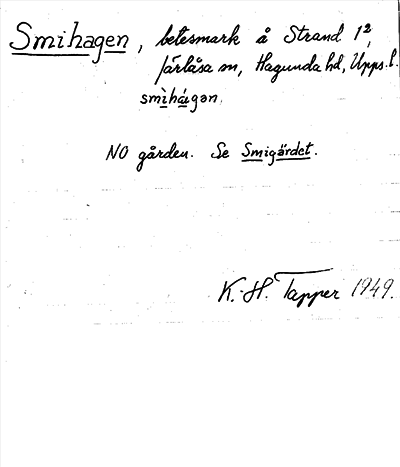 Smihagen, betesmark å Strand 1²,
Järlåsa sn, Hagunda hd, Upps. l.
smìhá̱gən.
NO gården. Se Smigärdet.
K.-H. Tapper 1949.